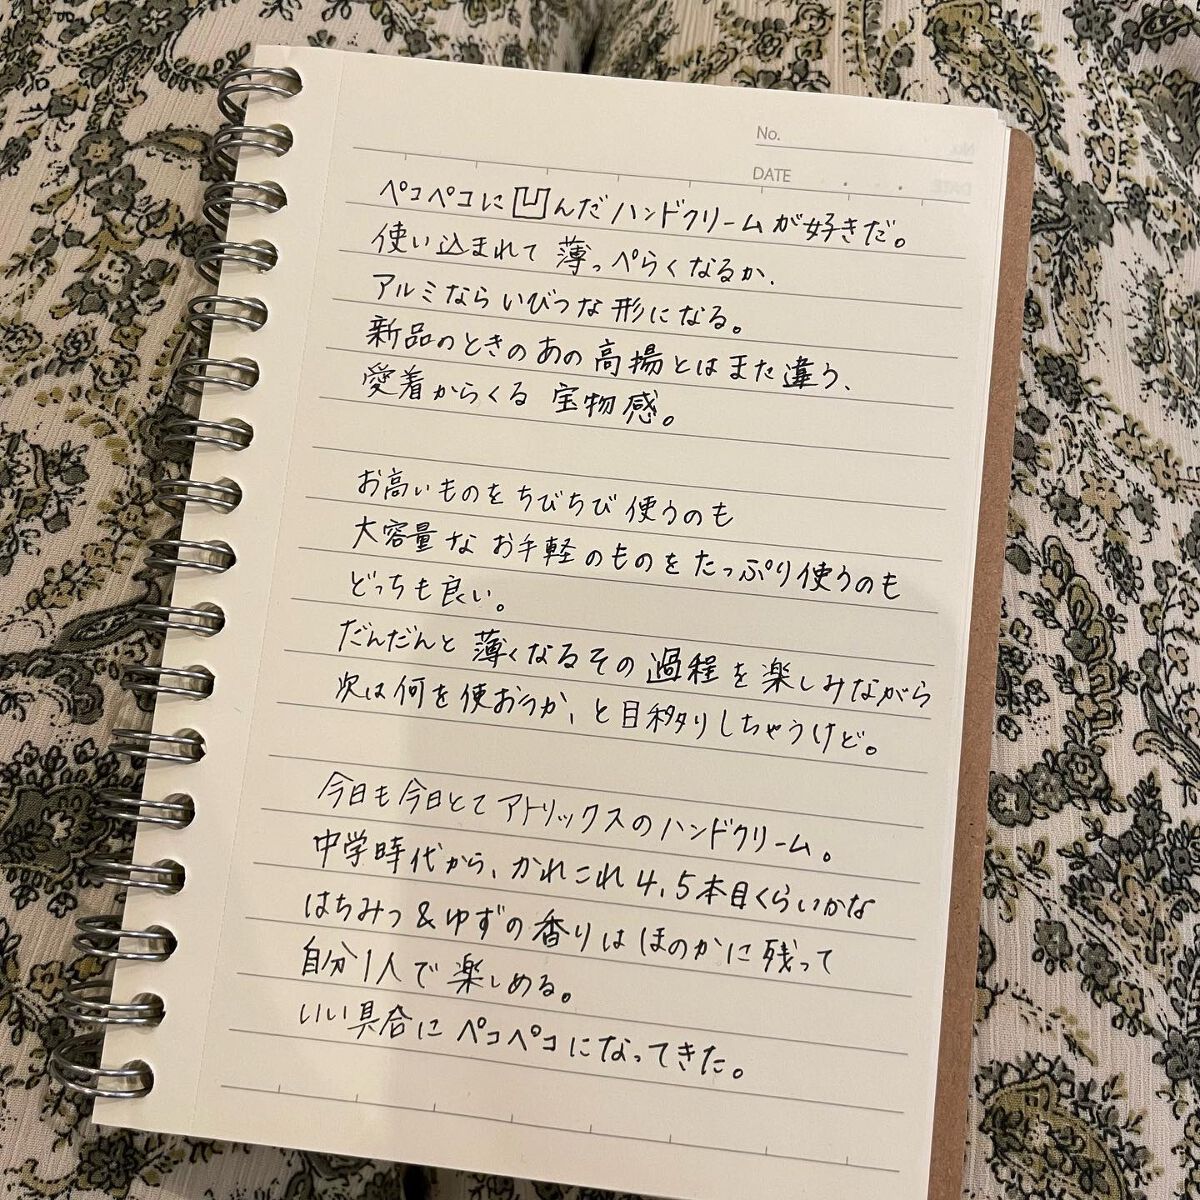 No.
DATE
ペコペコに凹んだハンドクリームが好きだ。
使い込まれて薄っぺらくなるか、
アルミならいびつな形になる。
新品のときのあの高揚とはまた違う、
愛着からくる宝物感。
お高いものをちびちび使うのも
大容量なお手軽のものをたっぷり使うのも
どっちも良い。
だんだんと薄くなるその過程を楽しみながら
次は何を使おうか、と目移りしちゃうけど。
今日も今日とてアトリックスのハンドクリーム。
中学時代から、かれこれ4,5本目くらいかな
はちみつ&ゆずの香りはほのかに残って
自分1人で楽しめる。
いい具合にペコペコになってきた。